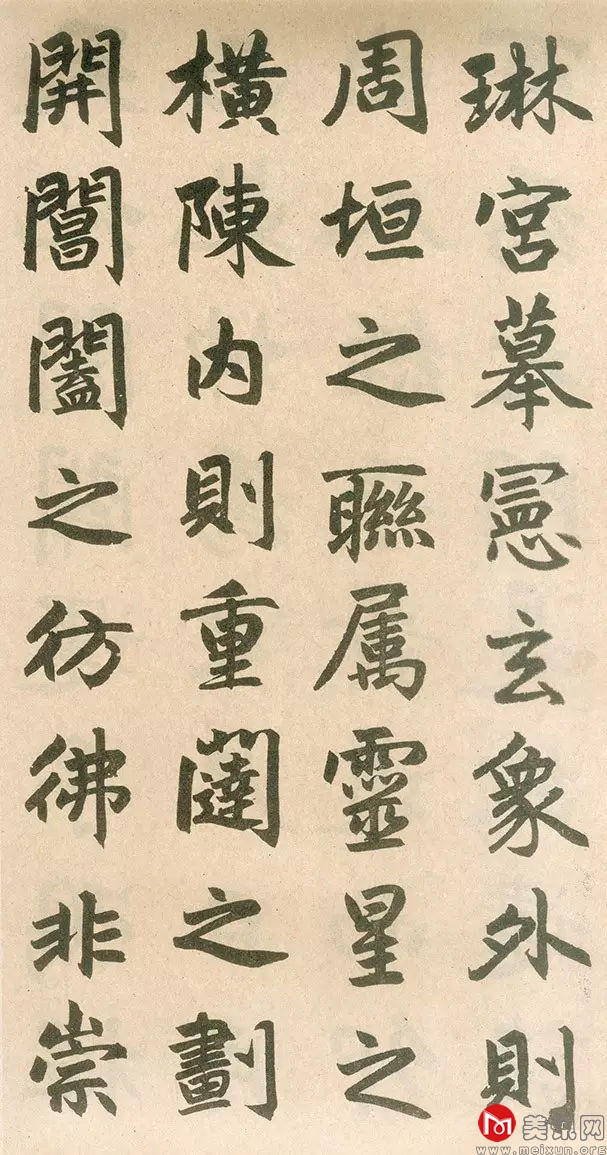 琳宮摹憲玄象外則
周垣之聯属靈星之
橫陳内則重闥之劃
開閶闔之彷彿非崇
美讯网
www.meixun.org